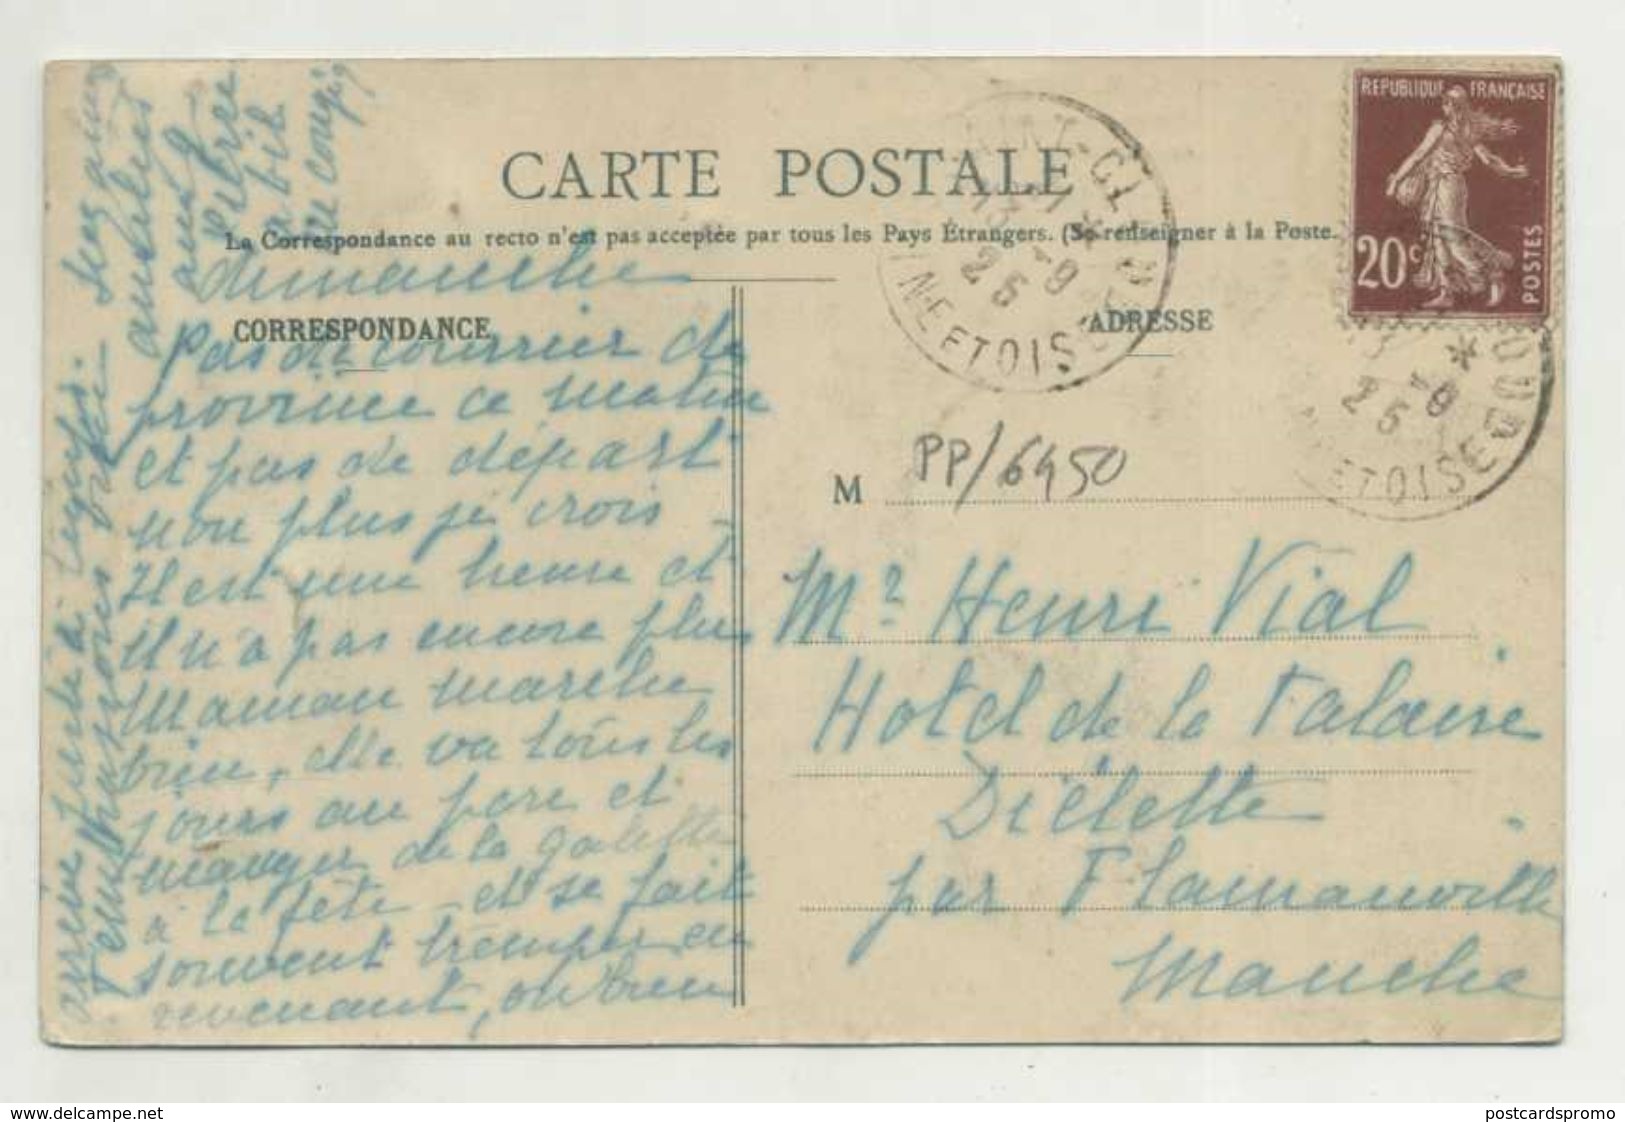 CARTE POSTALE
La Correspondance au recto n'est pas acceptée par tous les Pays Étrangers. (Se renseigner à la Poste.
REPUBLIQUE FRANÇAISE
20c
POSTES
CORRESPONDANCE
ADRESSE
Dimanche
Pas de courrier de
province ce matin
et pas de départ
non plus je crois -
Il est une heure et
il n'a pas encore plu
Maman marche
bien, elle va tous les
jours au parc et
manger de la galette
à la fête - et se fait
souvent tremper en
revenant, ou bien
arrive juste à temps.
M
PP/6450
Mr Henri Vial
Hotel de la Falaise
Diélette
par Flamanville
Manche
SEINE ET OISE
25
delcampe.net
postcardspromo